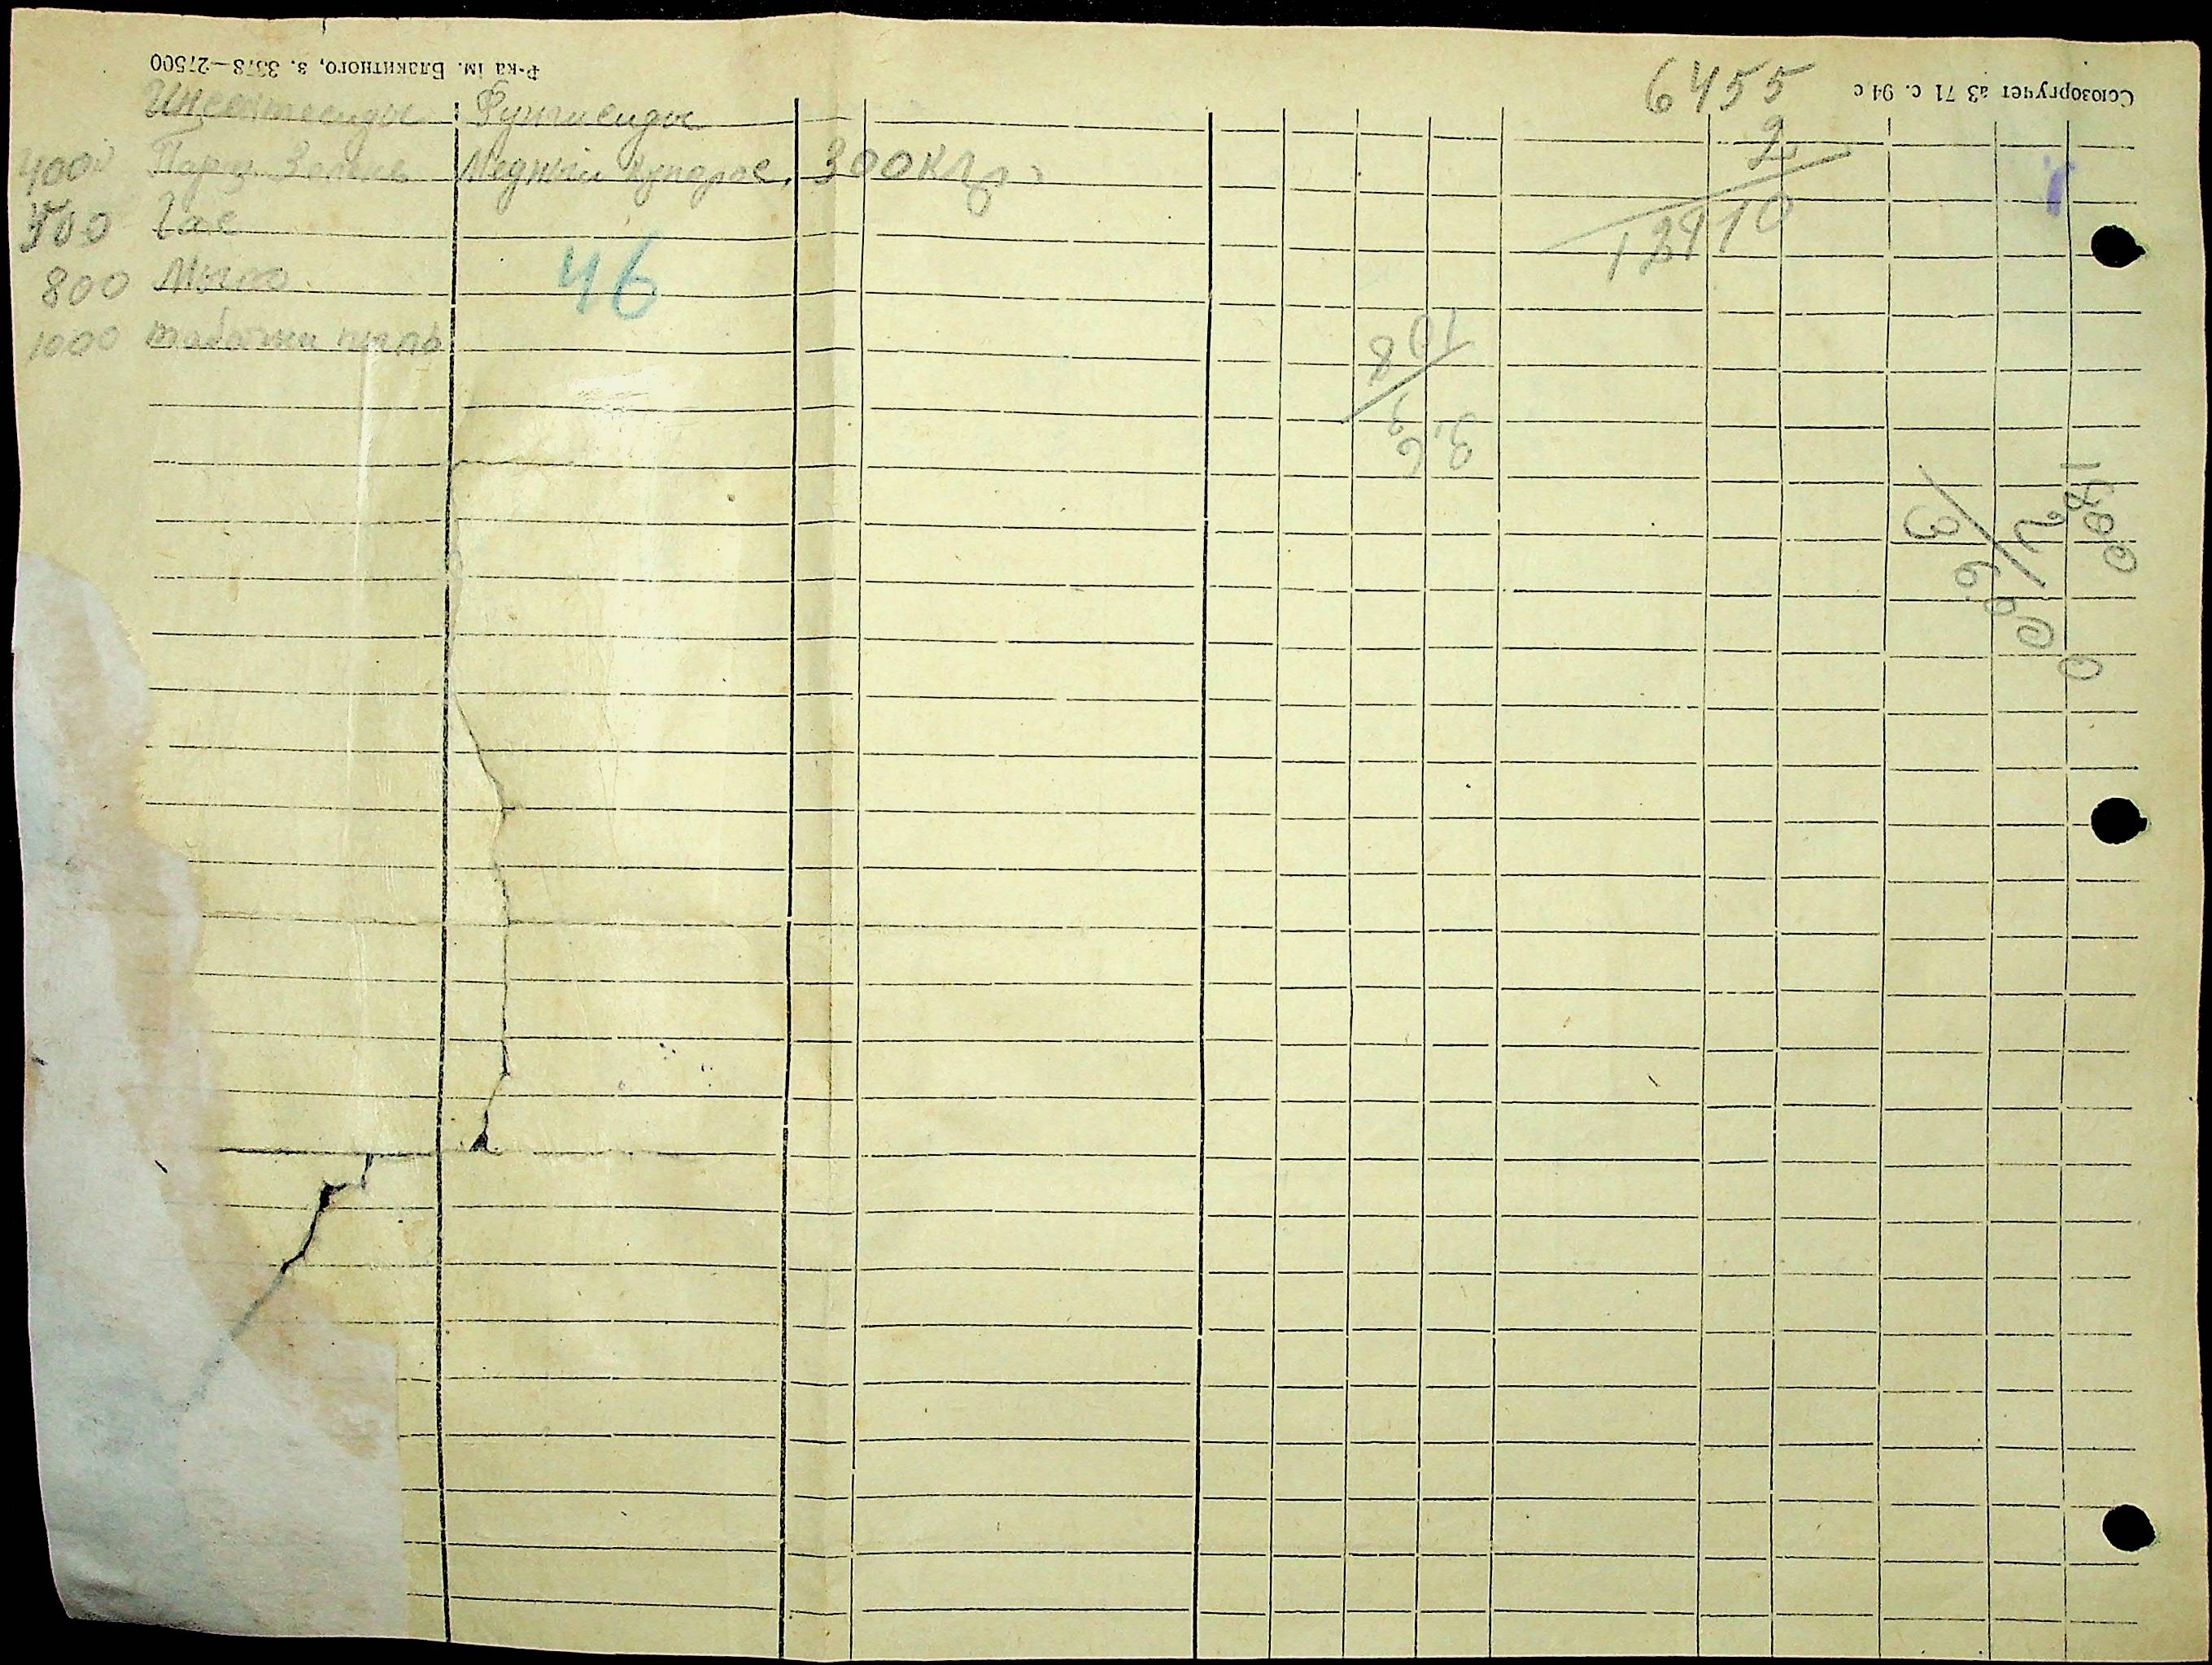 Ф-ка ім. Блакитного, з. 3378—27500
Союзоргучет а3 71 с. 94 с
Инсектисиды Фунгисиды
400 Париж. Зелень Медный купорос. 300 кгр
500 Гас
800 Мыло
1000 табачная пыль
46
6455
2
12910
10
8
3